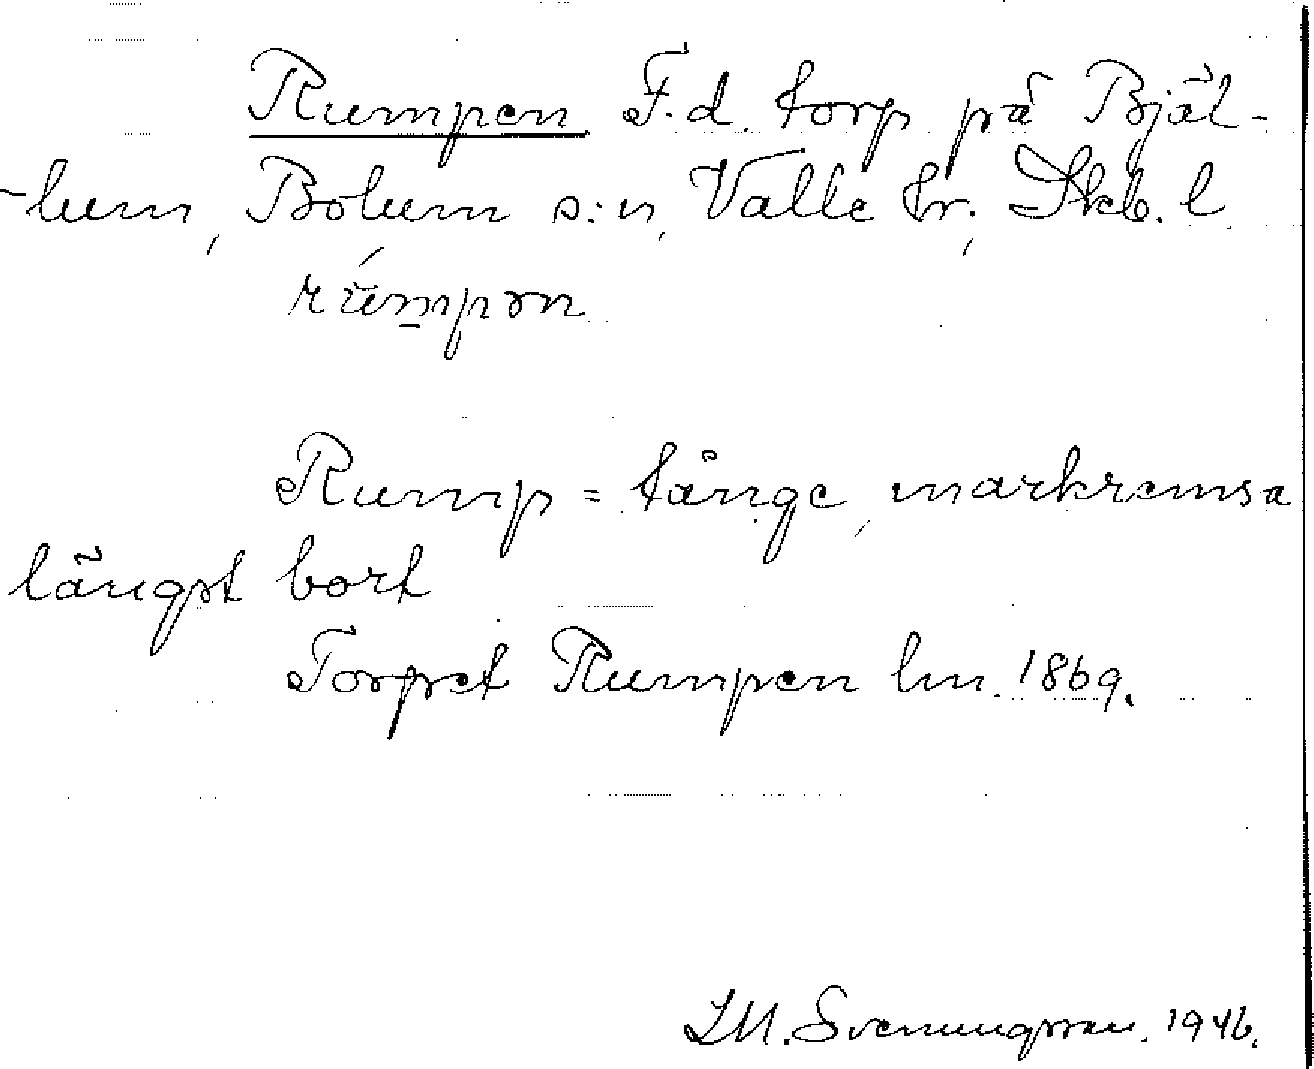 Rumpen F.d. torp på Bjäl-
-lum, Bolum s:n, Valle hr, Skb. l.
Rump = tånge, markremsa
längst bort
Torpet Rumpen lm. 1869.
Svenungsson. 1946.